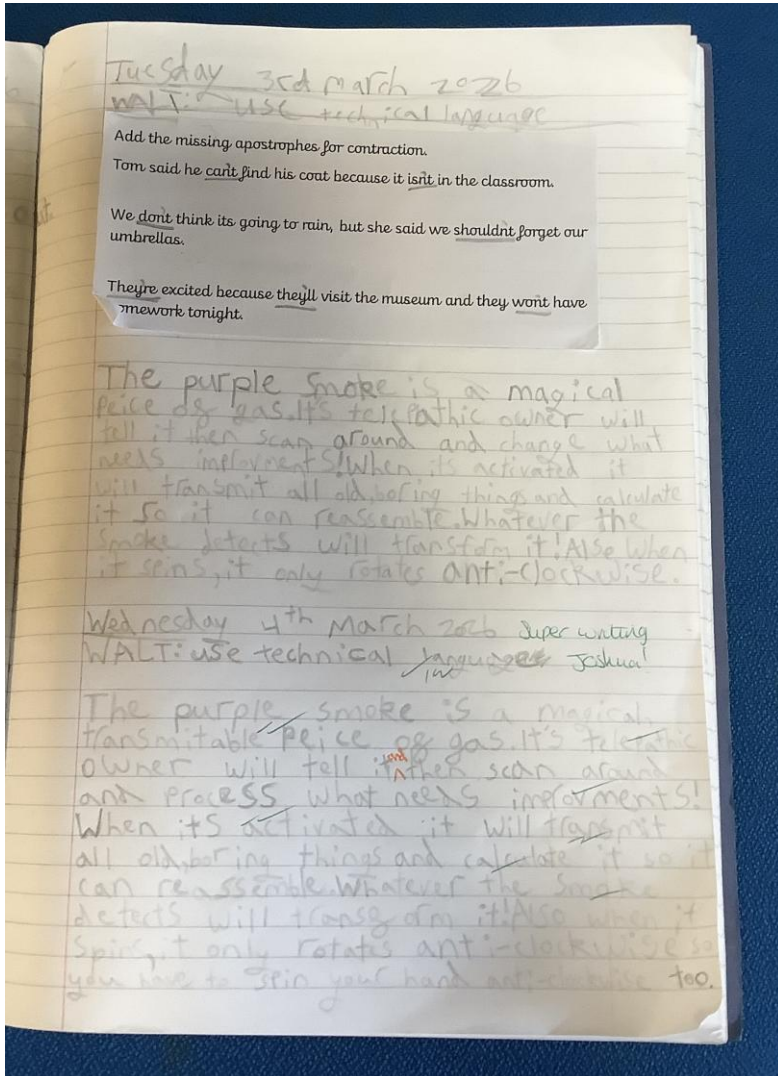 Tuesday 3rd march 2026
WALT: use technical language
Add the missing apostrophes for contraction.
Tom said he can't find his coat because it isn't in the classroom.
We don't think its going to rain, but she said we shouldn't forget our
umbrellas.
They're excited because they'll visit the museum and they won't have
omework tonight.
The purple smoke is a magical
Peice of gas. It's telepathic owner will
tell it then scan around and change what
needs improvments! When its activated it
will transmit all old, boring things and calculate
it so it can reassemble. Whatever the
smoke detects will transform it! Also when
it spins, it only rotates anti-clockwise.
Wednesday 4th March 2026 Super writing
WALT: use technical language Joshua!
The purple smoke is a magical,
transmitable peice of gas. It's telepathic
owner will tell it and then scan around
and process what needs improvments!
When its activated it will transmit
all old, boring things and calculate it so it
can reassemble. Whatever the smoke
detects will transform it! Also when it
spins, it only rotates anti-clockwise so
you have to spin your hand anti-clockwise too.